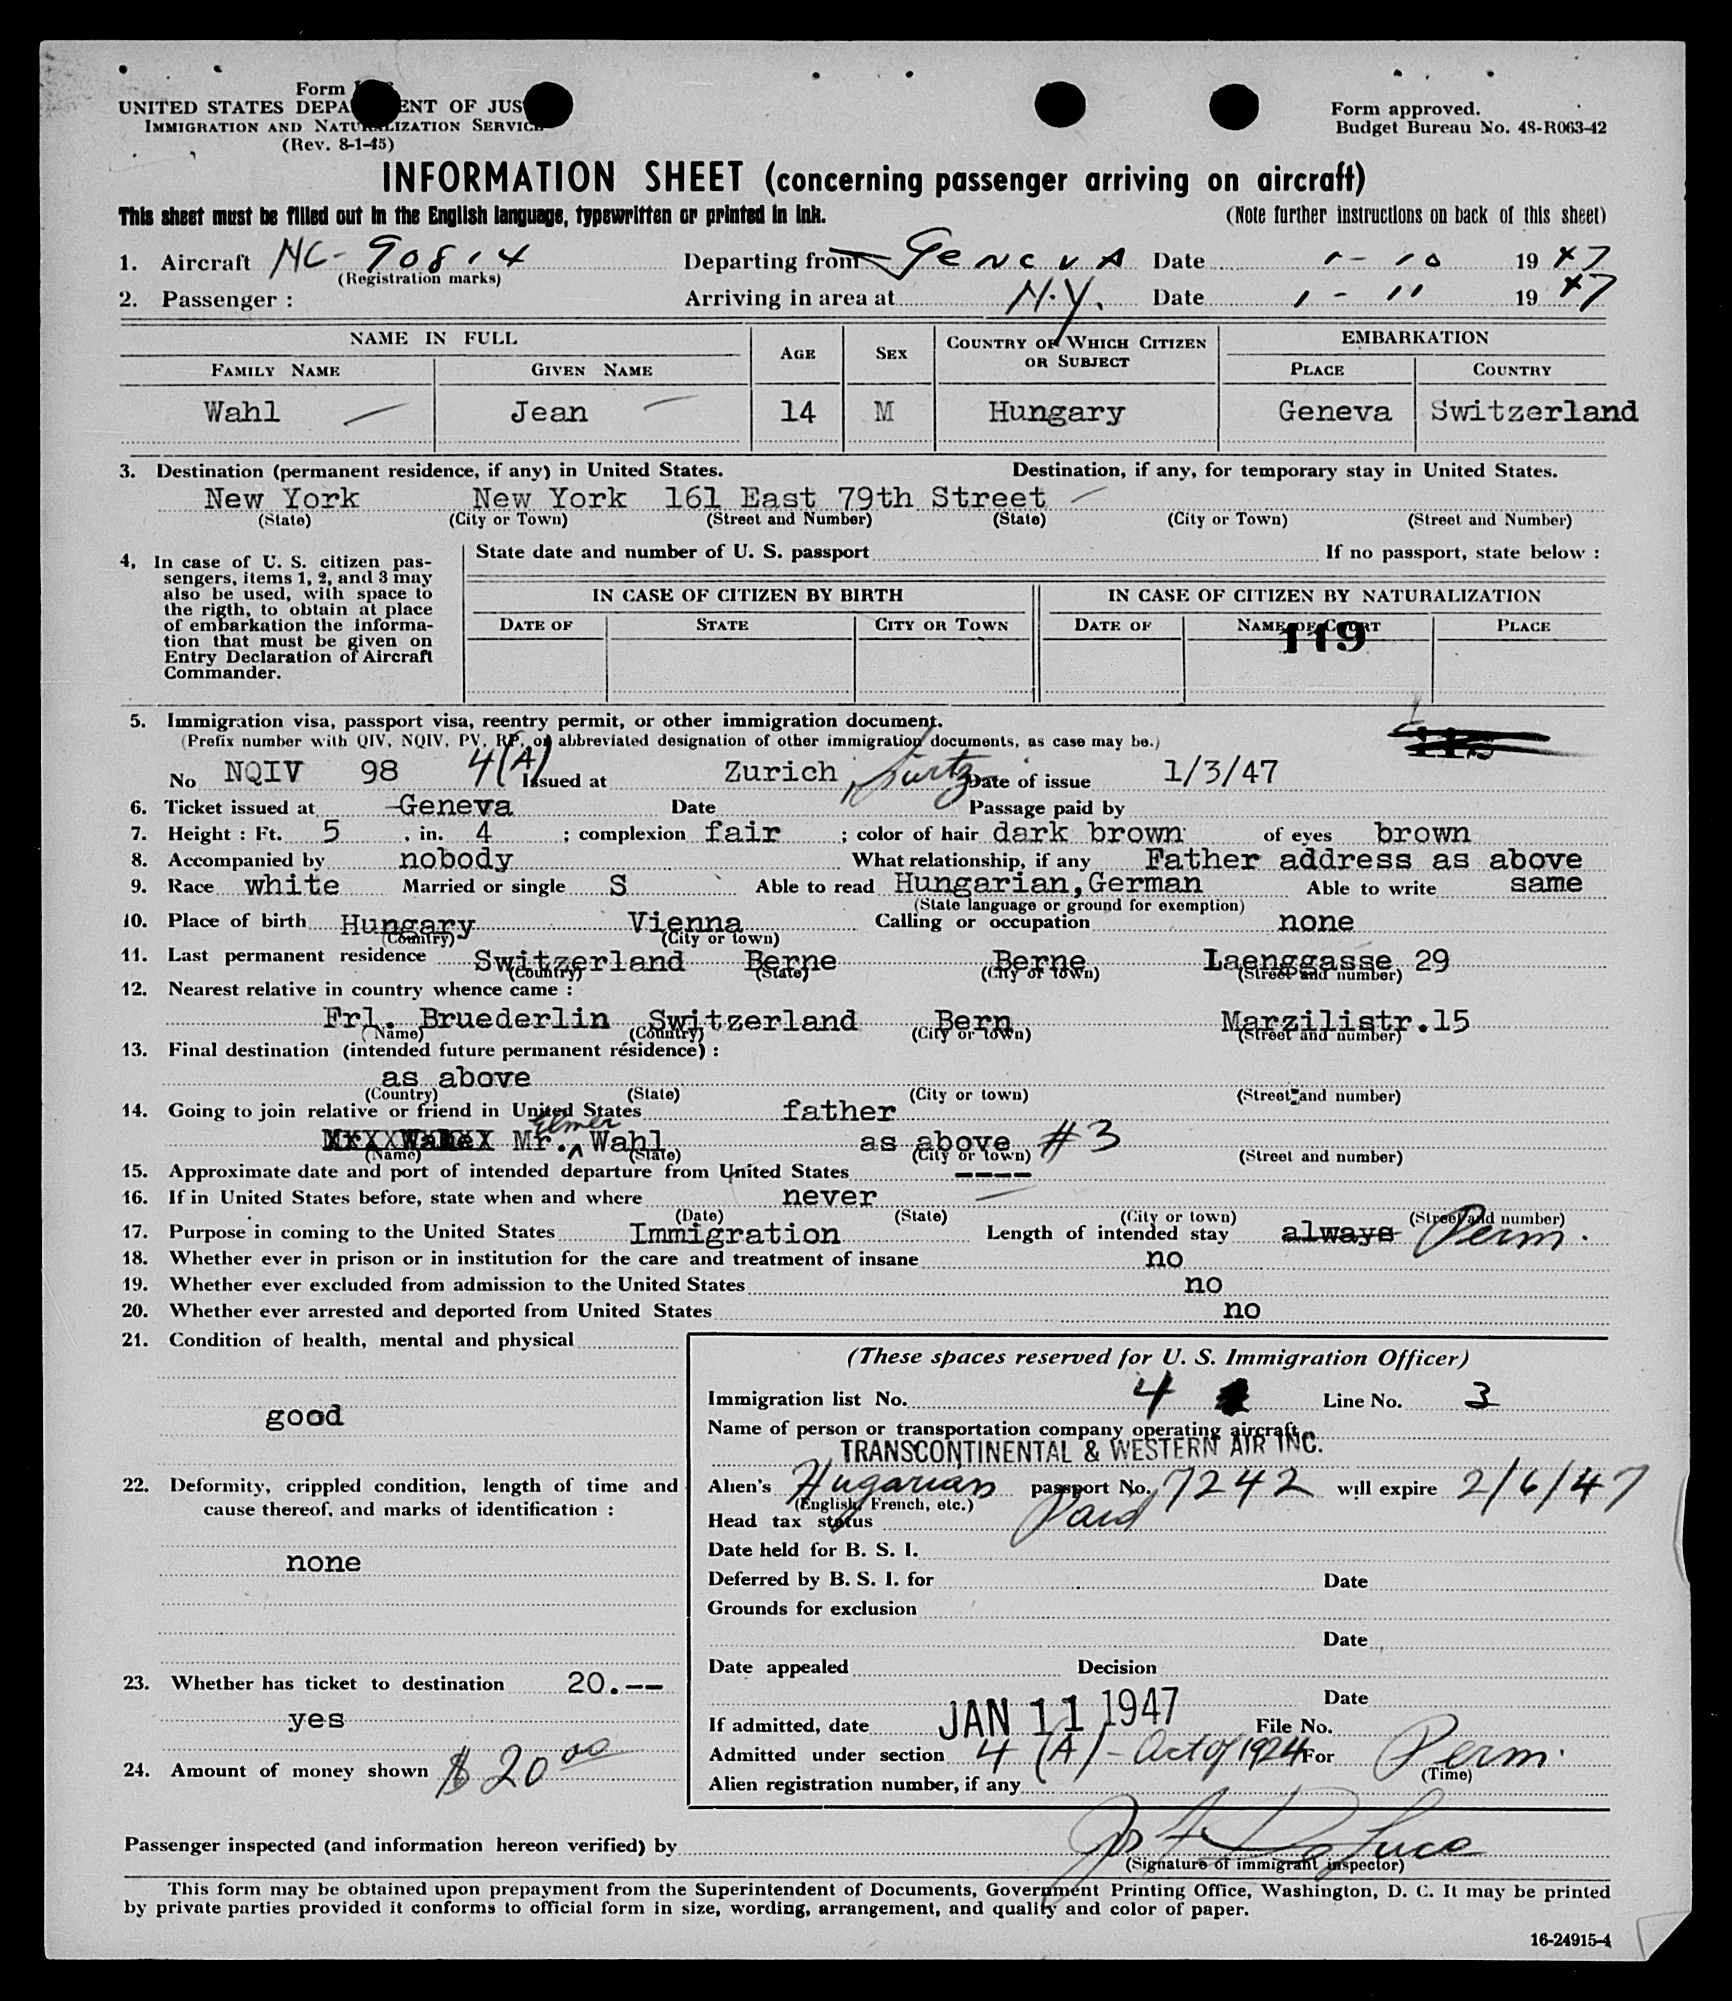 Form
UNITED STATES DEPA ENT OF JUS
IMMIGRATION AND NATURALIZATION SERVICE
(Rev. 8-1-45)
Form approved.
Budget Bureau No. 43-R063-42
INFORMATION SHEET (concerning passenger arriving on aircraft)
This sheet must be filled out in the English language, typewritten or printed in ink. (Note further instructions on back of this sheet)
1. Aircraft NC-90814 Departing from Geneva Date 1-10 1947
(Registration marks)
2. Passenger : Arriving in area at N.Y. Date 1-11 1947
NAME IN FULL AGE SEX COUNTRY OF WHICH CITIZEN OR SUBJECT EMBARKATION
FAMILY NAME GIVEN NAME PLACE COUNTRY
Wahl Jean 14 M Hungary Geneva Switzerland
3. Destination (permanent residence, if any) in United States. Destination, if any, for temporary stay in United States.
New York New York 161 East 79th Street
(State) (City or Town) (Street and Number) (State) (City or Town) (Street and Number)
4, In case of U. S. citizen pas-
sengers, items 1, 2, and 3 may
also be used, with space to
the rigth, to obtain at place
of embarkation the informa-
tion that must be given on
Entry Declaration of Aircraft
Commander.
State date and number of U. S. passport If no passport, state below :
IN CASE OF CITIZEN BY BIRTH IN CASE OF CITIZEN BY NATURALIZATION
DATE OF STATE CITY OR TOWN DATE OF NAME OF COURT PLACE
119
5. Immigration visa, passport visa, reentry permit, or other immigration document.
(Prefix number with QIV, NQIV, PV, RP, or abbreviated designation of other immigration documents, as case may be.)
No NQIV 98 4(A) Issued at Zurich Date of issue 1/3/47
6. Ticket issued at Geneva Date Passage paid by
7. Height : Ft. 5 , in. 4 ; complexion fair ; color of hair dark brown of eyes brown
8. Accompanied by nobody What relationship, if any Father address as above
9. Race white Married or single S Able to read Hungarian,German Able to write same
(State language or ground for exemption)
10. Place of birth Hungary Vienna Calling or occupation none
(Country) (City or town)
11. Last permanent residence Switzerland Berne Berne Laenggasse 29
(Country) (State) (City or town) (Street and number)
12. Nearest relative in country whence came :
Frl. Bruederlin Switzerland Bern Marzilistr.15
(Name) (Country) (City or town) (Street and number)
13. Final destination (intended future permanent residence) :
as above
(Country) (State) (City or town) (Street and number)
14. Going to join relative or friend in United States father
Mr. Elmer Wahl as above #3
(Name) (State) (City or town) (Street and number)
15. Approximate date and port of intended departure from United States ----
16. If in United States before, state when and where never
(Date) (State) (City or town) (Street and number)
17. Purpose in coming to the United States Immigration Length of intended stay always Perm.
18. Whether ever in prison or in institution for the care and treatment of insane no
19. Whether ever excluded from admission to the United States no
20. Whether ever arrested and deported from United States no
21. Condition of health, mental and physical
good
22. Deformity, crippled condition, length of time and
cause thereof, and marks of identification :
none
23. Whether has ticket to destination 20.--
yes
24. Amount of money shown $20 00
(These spaces reserved for U. S. Immigration Officer)
Immigration list No. 4 Line No. 3
Name of person or transportation company operating aircraft
TRANSCONTINENTAL & WESTERN AIR INC.
Alien's Hugarian passport No. 7242 will expire 2/6/47
(English, French, etc.)
Head tax status Paid
Date held for B. S. I.
Deferred by B. S. I. for Date
Grounds for exclusion
Date
Date appealed Decision
Date
If admitted, date JAN 11 1947 File No.
Admitted under section 4 (A) - Act of 1924 For Perm.
(Time)
Alien registration number, if any
Passenger inspected (and information hereon verified) by
(Signature of immigrant inspector)
This form may be obtained upon prepayment from the Superintendent of Documents, Government Printing Office, Washington, D. C. It may be printed
by private parties provided it conforms to official form in size, wording, arrangement, and quality and color of paper.
16-24915-4